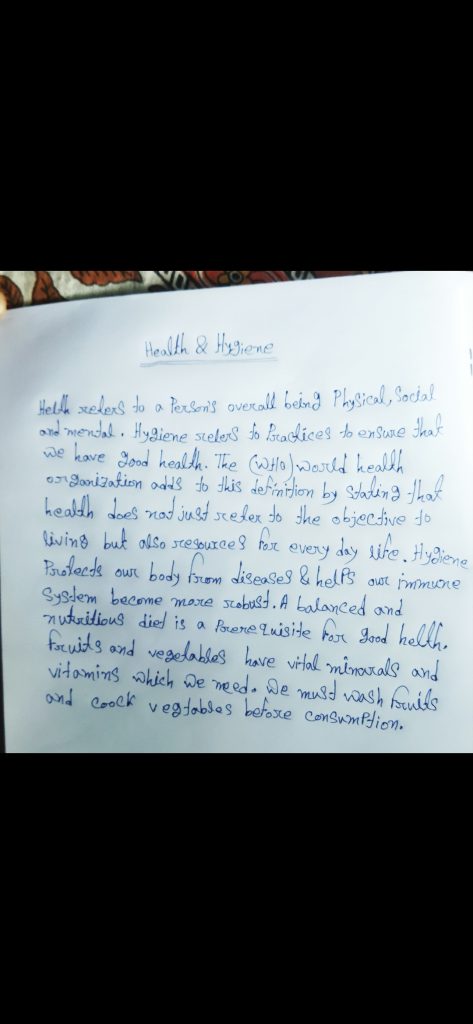 Health & Hygiene
Helth refers to a Person's overall being Physical, Social
and mental. Hygiene refers to Practices to ensure that
we have good health. The (WHO) world health
organization adds to this definition by Stating that
health does not just refer to the objective to
living but also resources for every day life. Hygiene
Protects our body from diseases & helps our immune
System become more robust. A balanced and
nutritious diet is a Prerequisite for good helth.
Fruits and vegetables have vital minarals and
vitamins which we need. We must wash fruits
and coock vegtables before consumption.